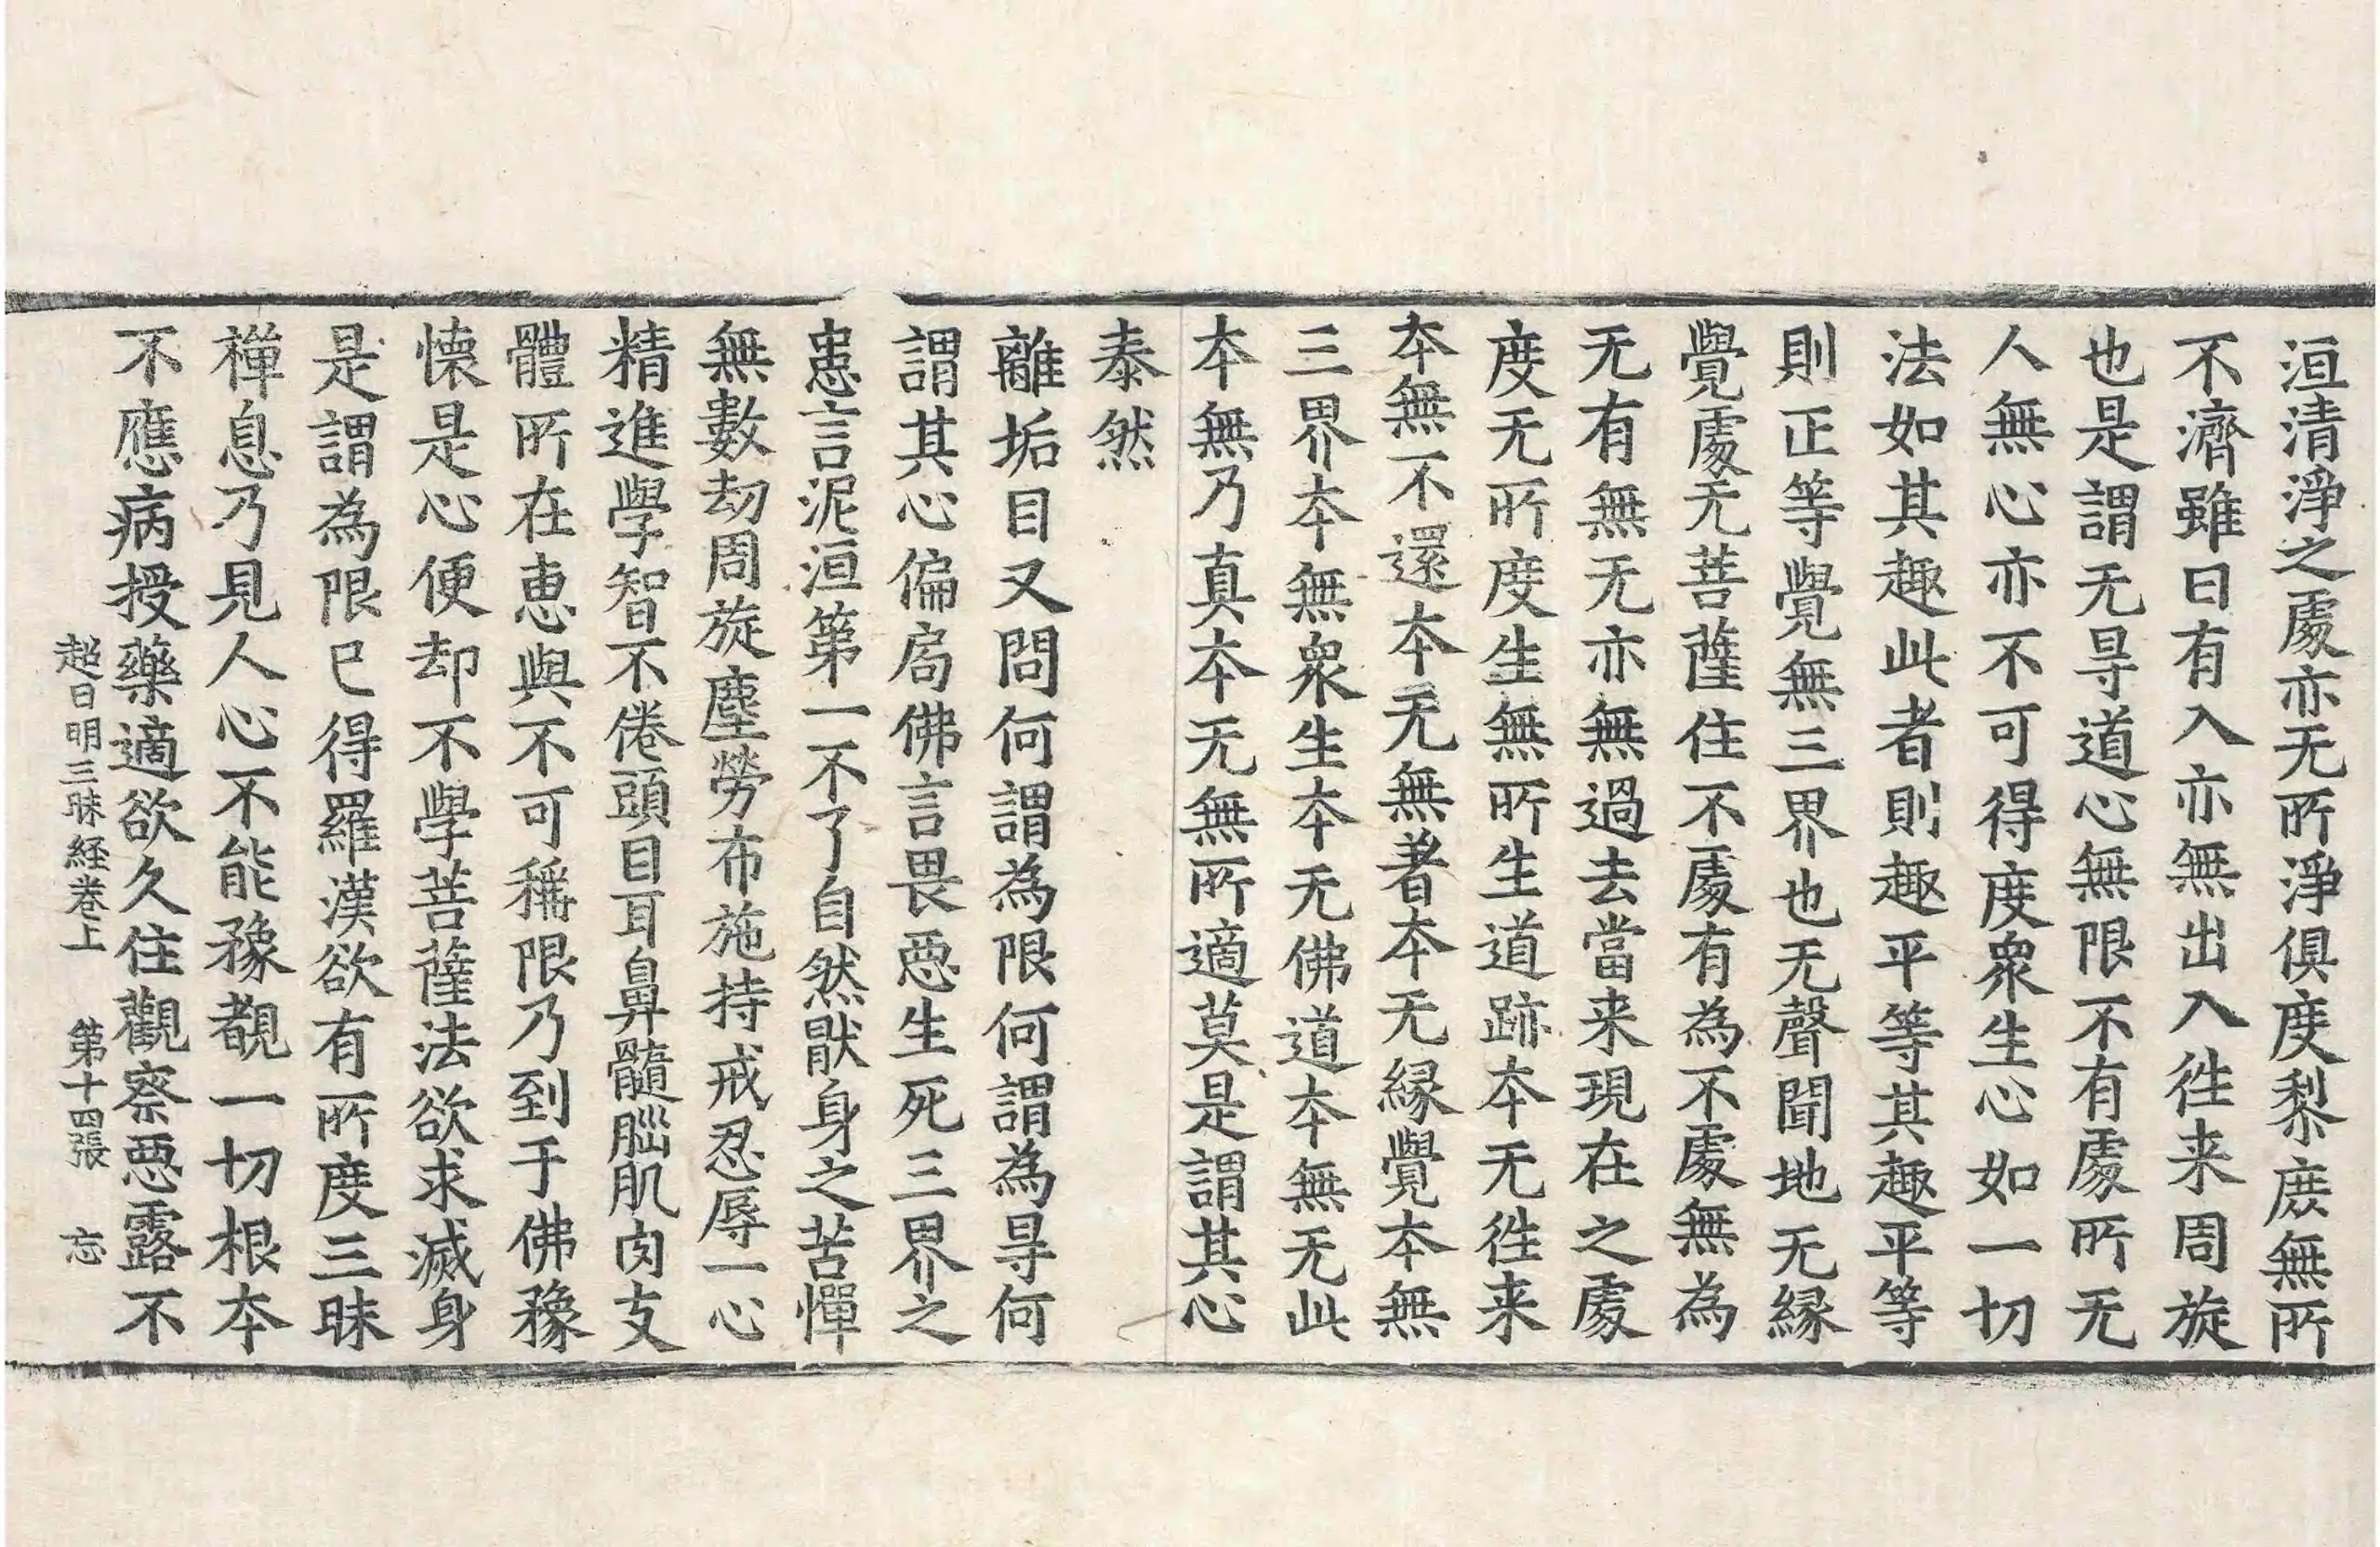 洹清淨之處亦无所淨俱度黎庻無所
不濟雖曰有入亦無出入徃来周旋
也是謂无㝵道心無限不有處所无
人無心亦不可得度衆生心如一切
法如其趣此者則趣平等其趣平等
則正等覺無三界也无聲聞地无緣
覺處无菩薩住不處有為不處無為
无有無无亦無過去當来現在之處
度无所度生無所生道跡本无徃来
本無不還本无無著本无緣覺本無
三界本無衆生本无佛道本無无此
本無乃真本无無所適莫是謂其心
泰然
離垢目又問何謂為限何謂為㝵何
謂其心偏局佛言畏惡生死三界之
患言泥洹第一不了自然猒身之苦憚
無數劫周旋塵勞布施持戒忍辱一心
精進學智不倦頭目耳鼻髓腦肌肉支
體所在惠與不可稱限乃到于佛豫
懷是心便却不學菩薩法欲求滅身
是謂為限已得羅漢欲有所度三昧
禪息乃見人心不能豫覩一切根本
不應病授藥適欲久住觀察惡露不
超日明三昧経卷上 第十四張 忘